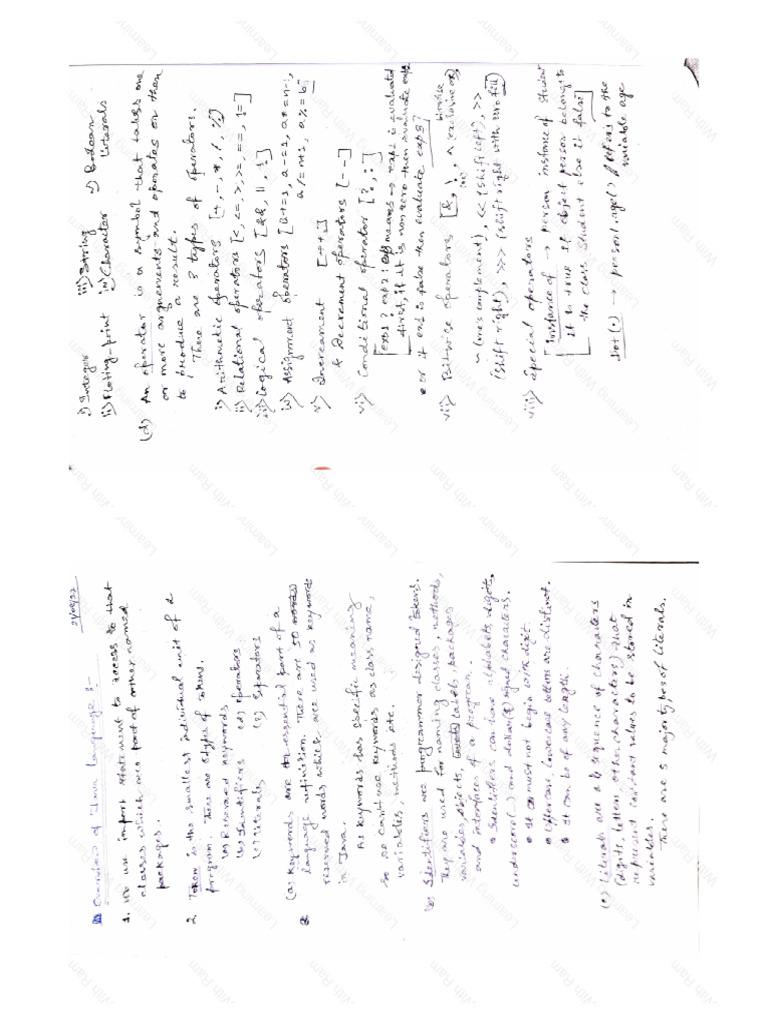 21/08/22
Overview of Java Language :-
1. We use import statement to access to that
classes which are part of other named
packages.
2. Token is the smallest individual unit of a
program. There are 5 types of tokens.
(a) Reserved keywords
(b) Identifiers (d) operators
(c) literals (e) Separators
(a) Keywords are an essential part of a
language definition. There are 50 words
reserved words which are used as keywords
in Java.
As keywords has specific meaning
so we can't use keywords as class name,
variables, methods etc.
(b) Identifiers are programmer designed tokens.
They are used for naming classes, methods,
variables, objects, labels, packages
and interfaces of a program.
• Identifiers can have alphabets, digits,
underscore(_) and dollar($) sign characters.
• It must not begin with digit.
• Uppercase, lowercase letters are distinct.
• It can be of any length.
(c) Literals are a sequence of characters
(digits, letters, other characters) that
represent constant values to be stored in
variables.
There are 5 major types of literals.
i) Integer iii) String v) Boolean
ii) Floting-print iv) Character literals
(d) An operator is a symbol that takes one
or more arguements and operates on them
to produce a result.
There are 8 types of operators.
i) Arithmetic operators [+, -, *, /, %]
ii) Relational operators [<, <=, >, >=, ==, !=]
iii) Logical operators [&&, ||, !]
iv) Assignment operators [a+=1, a-=1, a*=n-1,
a/=n+1, a%=b]
v) Increament [++]
& Decrement operators [--]
vi) Conditional operator [?, :]
[exp1 ? exp2 : exp3 means → exp1 is evaluated
first, if it is non zero then evaluate exp2
or if exp1 is false then evaluate exp3]
vii) Bitwise operators [&, |, ^ bitwise exclusive or,
~ (one's complement), << (shift left), >>
(shift right), >>> (shift right with zero fill)]
viii) special operators
Instance of → person instance of student
It is true if object person belongs to
the class Student else it false]
Dot (.) → person1.age() // Refers to the
variable age
Learning With Ram